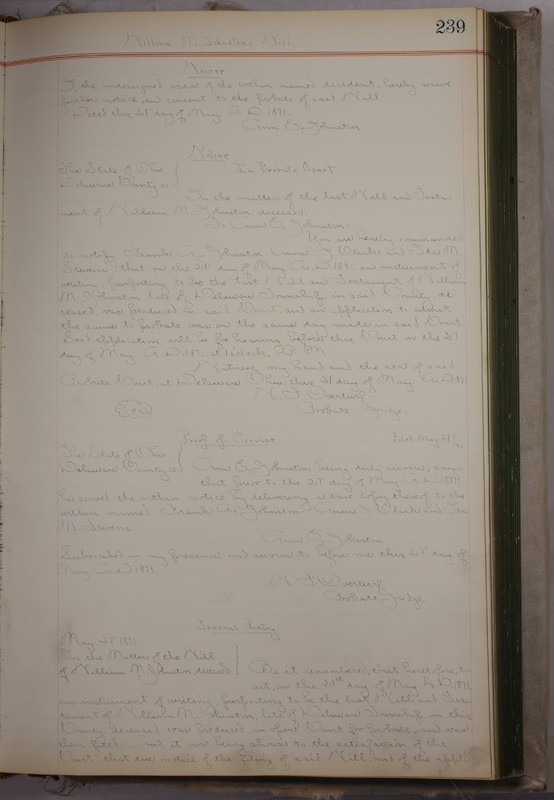 239
William M. Johnston's Will
Waiver
I, the undersigned widow of the within named decedent, hereby waive
further notice, and consent to the probate of said Will.
Dated this 21st day of May A.D. 1891
Ann E. Johnston
Notice
The State of Ohio
Delaware County ss
In Probate Court
In the matter of the last Will and Testa-
ment of William M. Johnston deceased.
To Ann E. Johnston
You are hereby commanded
to notify Frank A. Johnston Anna J. Clark and M.
Stevens, that on the 21st day of May A.D. 1891 an instrument of
writing, purporting to be the last Will and Testament of William
M. Johnston late of Delaware Township in said County, de-
ceased was produced in said Court, and an application to admit
the same to probate was on the same day made in said Court.
Said application will be for hearing before this Court on the
day of May A.D. 1891, at o'clock, M.
Witness my hand and the seal of said
Probate Court, at Delaware Ohio this 21 day of May A.D. 1891
Probate Judge.
Seal
Proof of Service
Filed May
The State of Ohio
Delaware County ss
Ann E. Johnston being duly sworn, says
that prior to the day of May A.D. 1891
he served the within notice by delivering a true copy thereof to the
within named Frank A. Johnston Anna J. Clark and
M. Stevens
Ann E. Johnston
Subscribed in my presence and sworn to before me this day of
May A.D. 1891.
Probate Judge
Journal Entry
May 1891.
In the Matter of the Will
of William M. Johnston, deceased
Be it remembered, that heretofore, to
wit, on the 21st day of May, A.D. 1891,
an instrument of writing, purporting to be the last Will and Tes-
tament of William M. Johnston late of Delaware Township, in this
County deceased was produced in open Court for probate, and was
then filed. And, it now being shown to the satisfaction of the
Court that due notice of the filing of said Will, and of the appli-